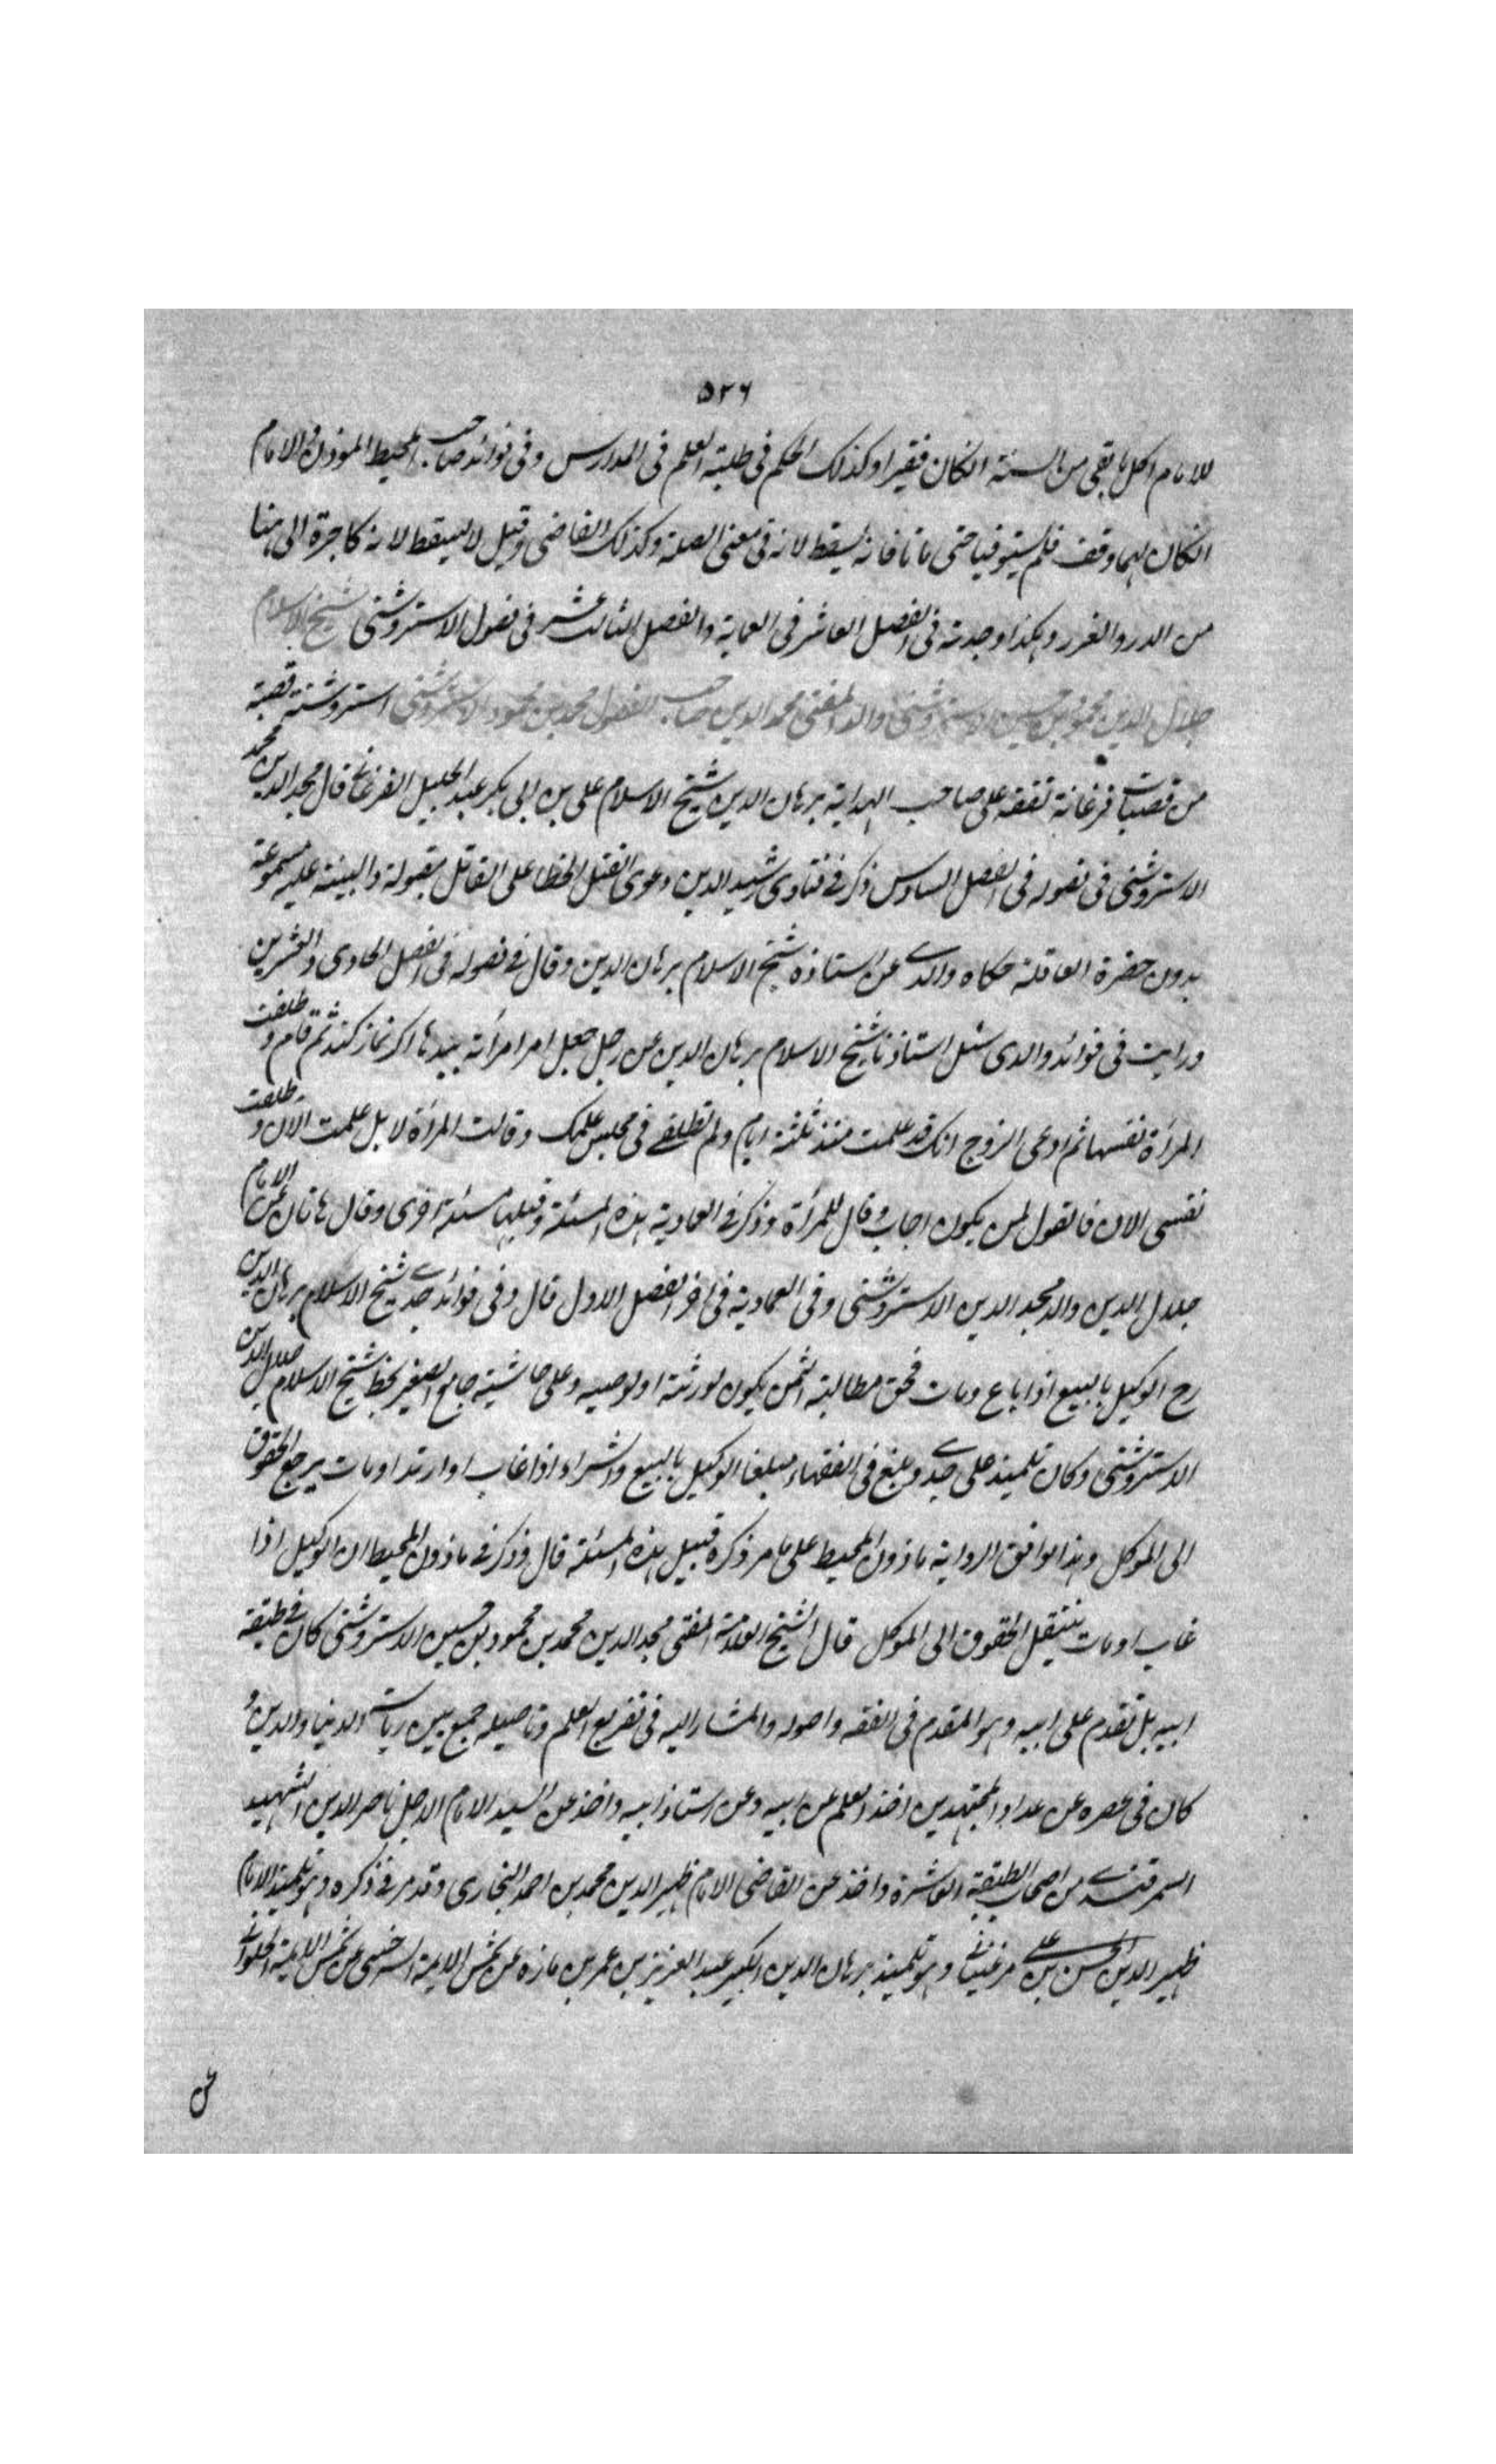 ٥٢٦
للامام اكل ما بقى من السنة ان كان فقيرا وكذلك الحكم فى طلبة العلم فى المدارس وفى فوائد صاحب المحيط المؤذن والامام
ان كان لهما وقف فلم يستوفيا حتى ماتا فانه يسقط لانه فى معنى الصلة وكذلك القاضى وقيل لا يسقط لانه كاجرة الى هنا
من الدرر والغرر وهكذا وجدته فى الفصل العاشر فى العمادية والفصل الثالث عشر فى فصول الاستروشنى شيخ الاسلام
جلال الدين محمود بن حسين الاستروشنى والد المفتى مجد الدين صاحب الفصول محمد بن محمود الاستروشنى استروشنة قصبة
من قصبات فرغانة تفقه على صاحب الهداية برهان الدين شيخ الاسلام على بن ابى بكر عبد الجليل الفرغانى قال مجد الدين محمد
الاستروشنى فى فصوله فى الفصل السادس ذكر فى فتاوى رشيد الدين دعوى القتل الخطا على القاتل مقبولة والبينة عليه مسموعة
بدون حضرة العاقلة حكاه والدى عن استاذه شيخ الاسلام برهان الدين وقال فى فصوله فى الفصل الحادى والعشرين
ورايت فى فوائد والدى سئل استاذنا شيخ الاسلام برهان الدين عن رجل جعل امر امرأته بيدها اكر نماز كند ثم قام وطلقت
المرأة نفسها ثم ادعى الزوج انك قد علمت منذ ثلثة ايام ولم تطلقى فى مجلس علمك وقالت المرأة لا بل علمت الان وطلقت
نفسى الان فالقول لمن يكون اجاب وقال للمرأة وذكر فى العمادية هذه المسئلة وقبلها مسئلة اخرى وقال هاتان عن الامام
جلال الدين والد مجد الدين الاستروشنى وفى العمادية فى اخر الفصل الاول قال وفى فوائد جدى شيخ الاسلام برهان الدين
رح الوكيل بالبيع اذا باع ومات فحق مطالبة الثمن يكون لورثته او لوصيه وعلى حاشية جامع الصغير بخط شيخ الاسلام جلال الدين
الاستروشنى وكان تلميذ على جدى وبلغ فى الفقهاء مبلغا الوكيل بالبيع والشراء اذا غاب او ارتد او مات يرجع الحقوق
الى الموكل وهذا يوافق الرواية ماذون المحيط على ما مر ذكره قبيل هذه المسئلة قال وذكر فى ماذون المحيط ان الوكيل اذا
غاب او مات ينتقل الحقوق الى الموكل قال الشيخ العلامة المفتى مجد الدين محمد بن محمود بن حسين الاستروشنى كان فى طبقة
ابيه بل تقدم على ابيه وهو المقدم فى الفقه واصوله والمشار اليه فى تفريع العلم وتاصيله جمع بين رياسة الدنيا والدين و
كان فى عصره عن عداد المجتهدين اخذ العلم عن ابيه وعن استاذ ابيه واخذ عن السيد الامام الاجل ناصر الدين الشهيد
السمرقندى من اصحاب الطبقة العاشرة واخذ عن القاضى الامام ظهير الدين محمد بن احمد البخارى وقد مر فى ذكره وهو تلميذ الامام
ظهير الدين الحسن بن على مرغينانى وهو تلميذ برهان الدين الكبير عبد العزيز بن عمر بن مازه عن شمس الائمة السرخسى عن شمس الائمة الحلوانى
عن